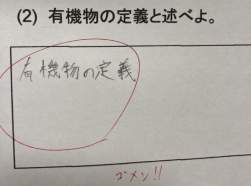 (2) 有機物の定義と述べよ。
有機物の定義
ゴメン!!